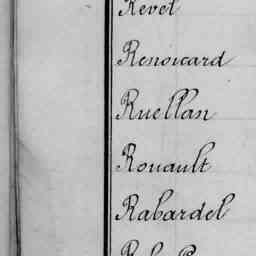 Revel
Renouard
Ruellan
Rouault
Rabardel